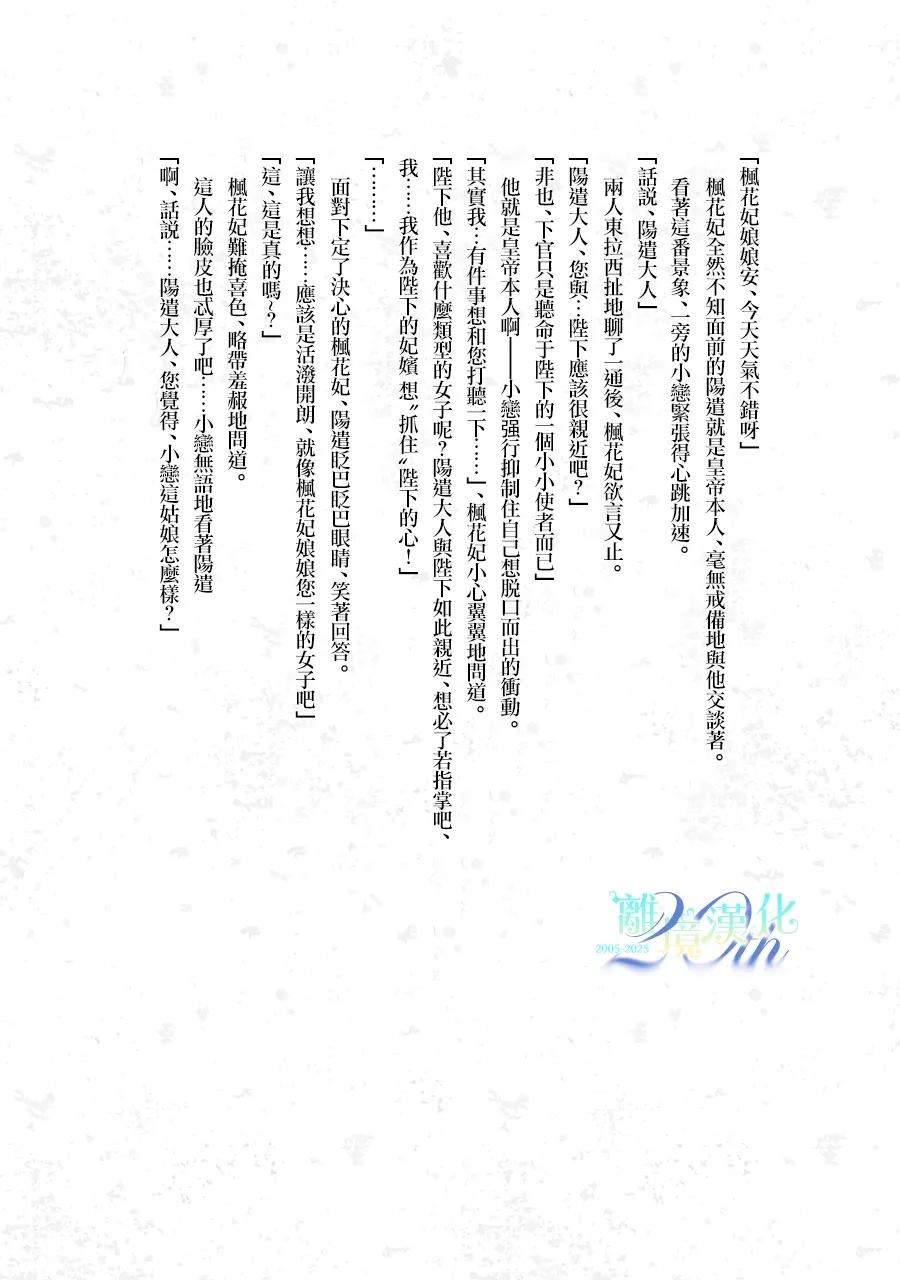 「楓花妃娘娘安、今天天氣不錯呀」
楓花妃全然不知面前的陽遣就是皇帝本人、毫無戒備地與他交談著。
看著這番景象、一旁的小戀緊張得心跳加速。
「話説、陽遣大人」
兩人東拉西扯地聊了一通後、楓花妃欲言又止。
「陽遣大人、您與…陛下應該很親近吧？」
「非也、下官只是聽命于陛下的一個小小使者而已」
他就是皇帝本人啊——小戀强行抑制住自己想脱口而出的衝動。
「其實我…有件事想和您打聽一下……」、楓花妃小心翼翼地問道。
「陛下他、喜歡什麼類型的女子呢？陽遣大人與陛下如此親近、想必了若指掌吧、
我……我作為陛下的妃嬪 想〝抓住〟陛下的心！」
「………」
面對下定了決心的楓花妃、陽遣眨巴眨巴眼睛、笑著回答。
「讓我想想……應該是活潑開朗、就像楓花妃娘娘您一樣的女子吧」
「這、這是真的嗎~？」
楓花妃難掩喜色、略帶羞赧地問道。
這人的臉皮也忒厚了吧……小戀無語地看著陽遣
「啊、話説……陽遣大人、您覺得、小戀這姑娘怎麼樣？」
離境漢化
20th
2005-2025